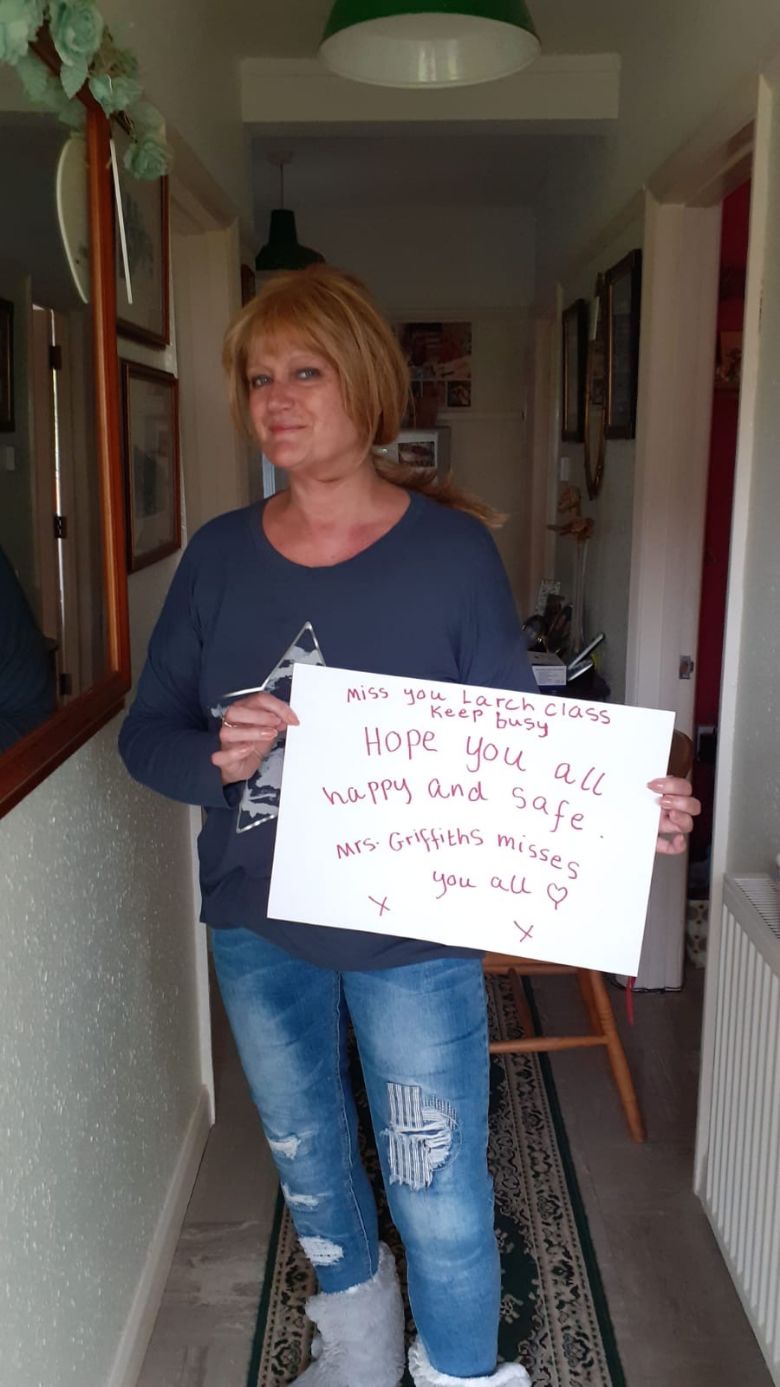 Miss you Larch class
Keep busy
Hope you all
happy and safe.
Mrs. Griffiths misses
you all ♡
x
x